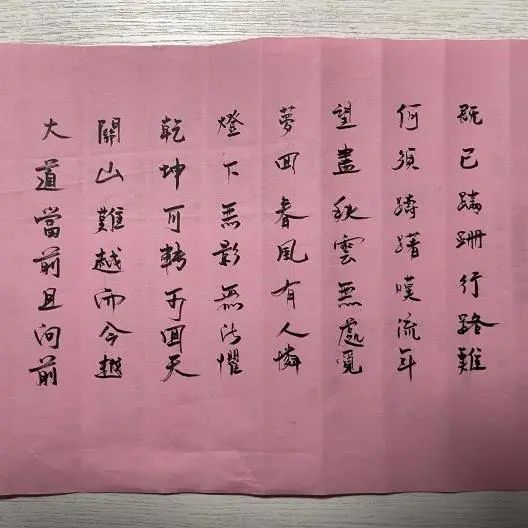 既已蹣跚行路難
何須躊躇嘆流年
望盡秋雲無處覓
夢回春風有人憐
燈下無影無所懼
乾坤可轉可回天
關山難越而今越
大道當前且向前